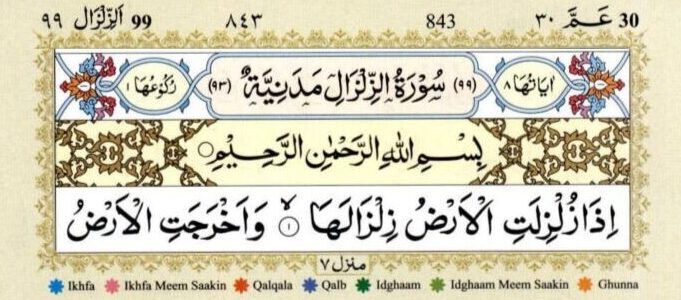 30 عَمَّ ٣٠ 843 ٨٤٣ 99 اَلزِّلْزَال ٩٩
اٰيَاتُهَا ٨ (٩٩) سُوْرَةُ الزِّلْزَالِ مَدَنِيَّةٌ (٩٣) رُكُوْعُهَا ١
بِسْمِ اللهِ الرَّحْمٰنِ الرَّحِيْمِ
اِذَا زُلْزِلَتِ الْاَرْضُ زِلْزَالَهَا ۙ ١ وَاَخْرَجَتِ الْاَرْضُ
منزل ٧
Ikhfa Ikhfa Meem Saakin Qalqala Qalb Idghaam Idghaam Meem Saakin Ghunna